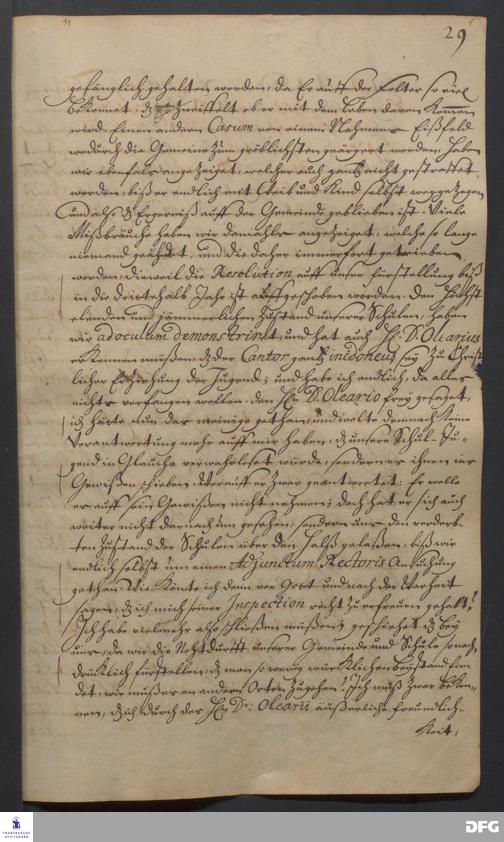 29
gefänglich gehalten worden, da Er auff der Folter so viel
bekennet, dz man zweiffelt ob er mit dem Leben davon kommen
wird. Einen andern Casum von einem Nahmens Eißfeld
wodurch die Gemeine zum gröblichsten geärgert worden, haben
wir ebenfals angezeiget, welcher auch gantz nicht gestraffet
worden, biß er endlich mit Weib und Kind selbst weggezogen
und also dz Ergerniß auff der Gemeinde geblieben ist. Viele
Mißbräuche haben wir damahls angezeiget, welche so lange
niemand geahndet, und die daher immerfort getrieben
worden, dieweil die Resolution auff unser fürstellung biß
in die dritthalb Jahr ist auffgeschoben worden. Den höchst
elenden und jämmerlichen Zustand unserer Schulen, haben
wir ad oculum demonstriret, und hat auch H. D. Olearius
erkennen müßen, dz der Cantor gantz inidoneus sey zu Christ
licher Erziehung der Jugend; und habe ich endlich, da alles
nichts verfangen wollen, den H. D. Oleario frey gesaget,
ich hätte nun das meinige gethan, und wolte demnach keine
Verantwortung mehr auff mir haben, dz unsere Schul-Ju-
gend in Glaucha verwahrloset würde, sondern es ihnen ins
Gewißen schieben. Worauff er zwar geantwortet: Er wolle
es auff sein Gewißen nicht nehmen; doch hat er sich auch
weiter nicht darnach umgesehen, sondern uns den verderb-
ten Zustand der Schulen über den Halß gelaßen, biß wir
endlich selbst um einen Adjunctum Rectoris Ansuchung
gethan. Wie könte ich denn vor Gott und nach der Warheit
sagen, dz ich mich seiner Inspection recht zu erfreuen gehabt?
Ich habe vielmehr also schließen müßen, geschiehet dz bey
uns, da wir die Nothdurfft unserer Gemeinde und Schule so nach-
drücklich fürstellen, dz man so wenig würcklichen beystand fin-
det, wie muß es an andern Orten zugehen? Ich muß zwar beken-
nen, dz ich durch des H. Dr. Olearii äußerliche freundlich-
keit,
FRANCKESCHE STIFTUNGEN
DFG